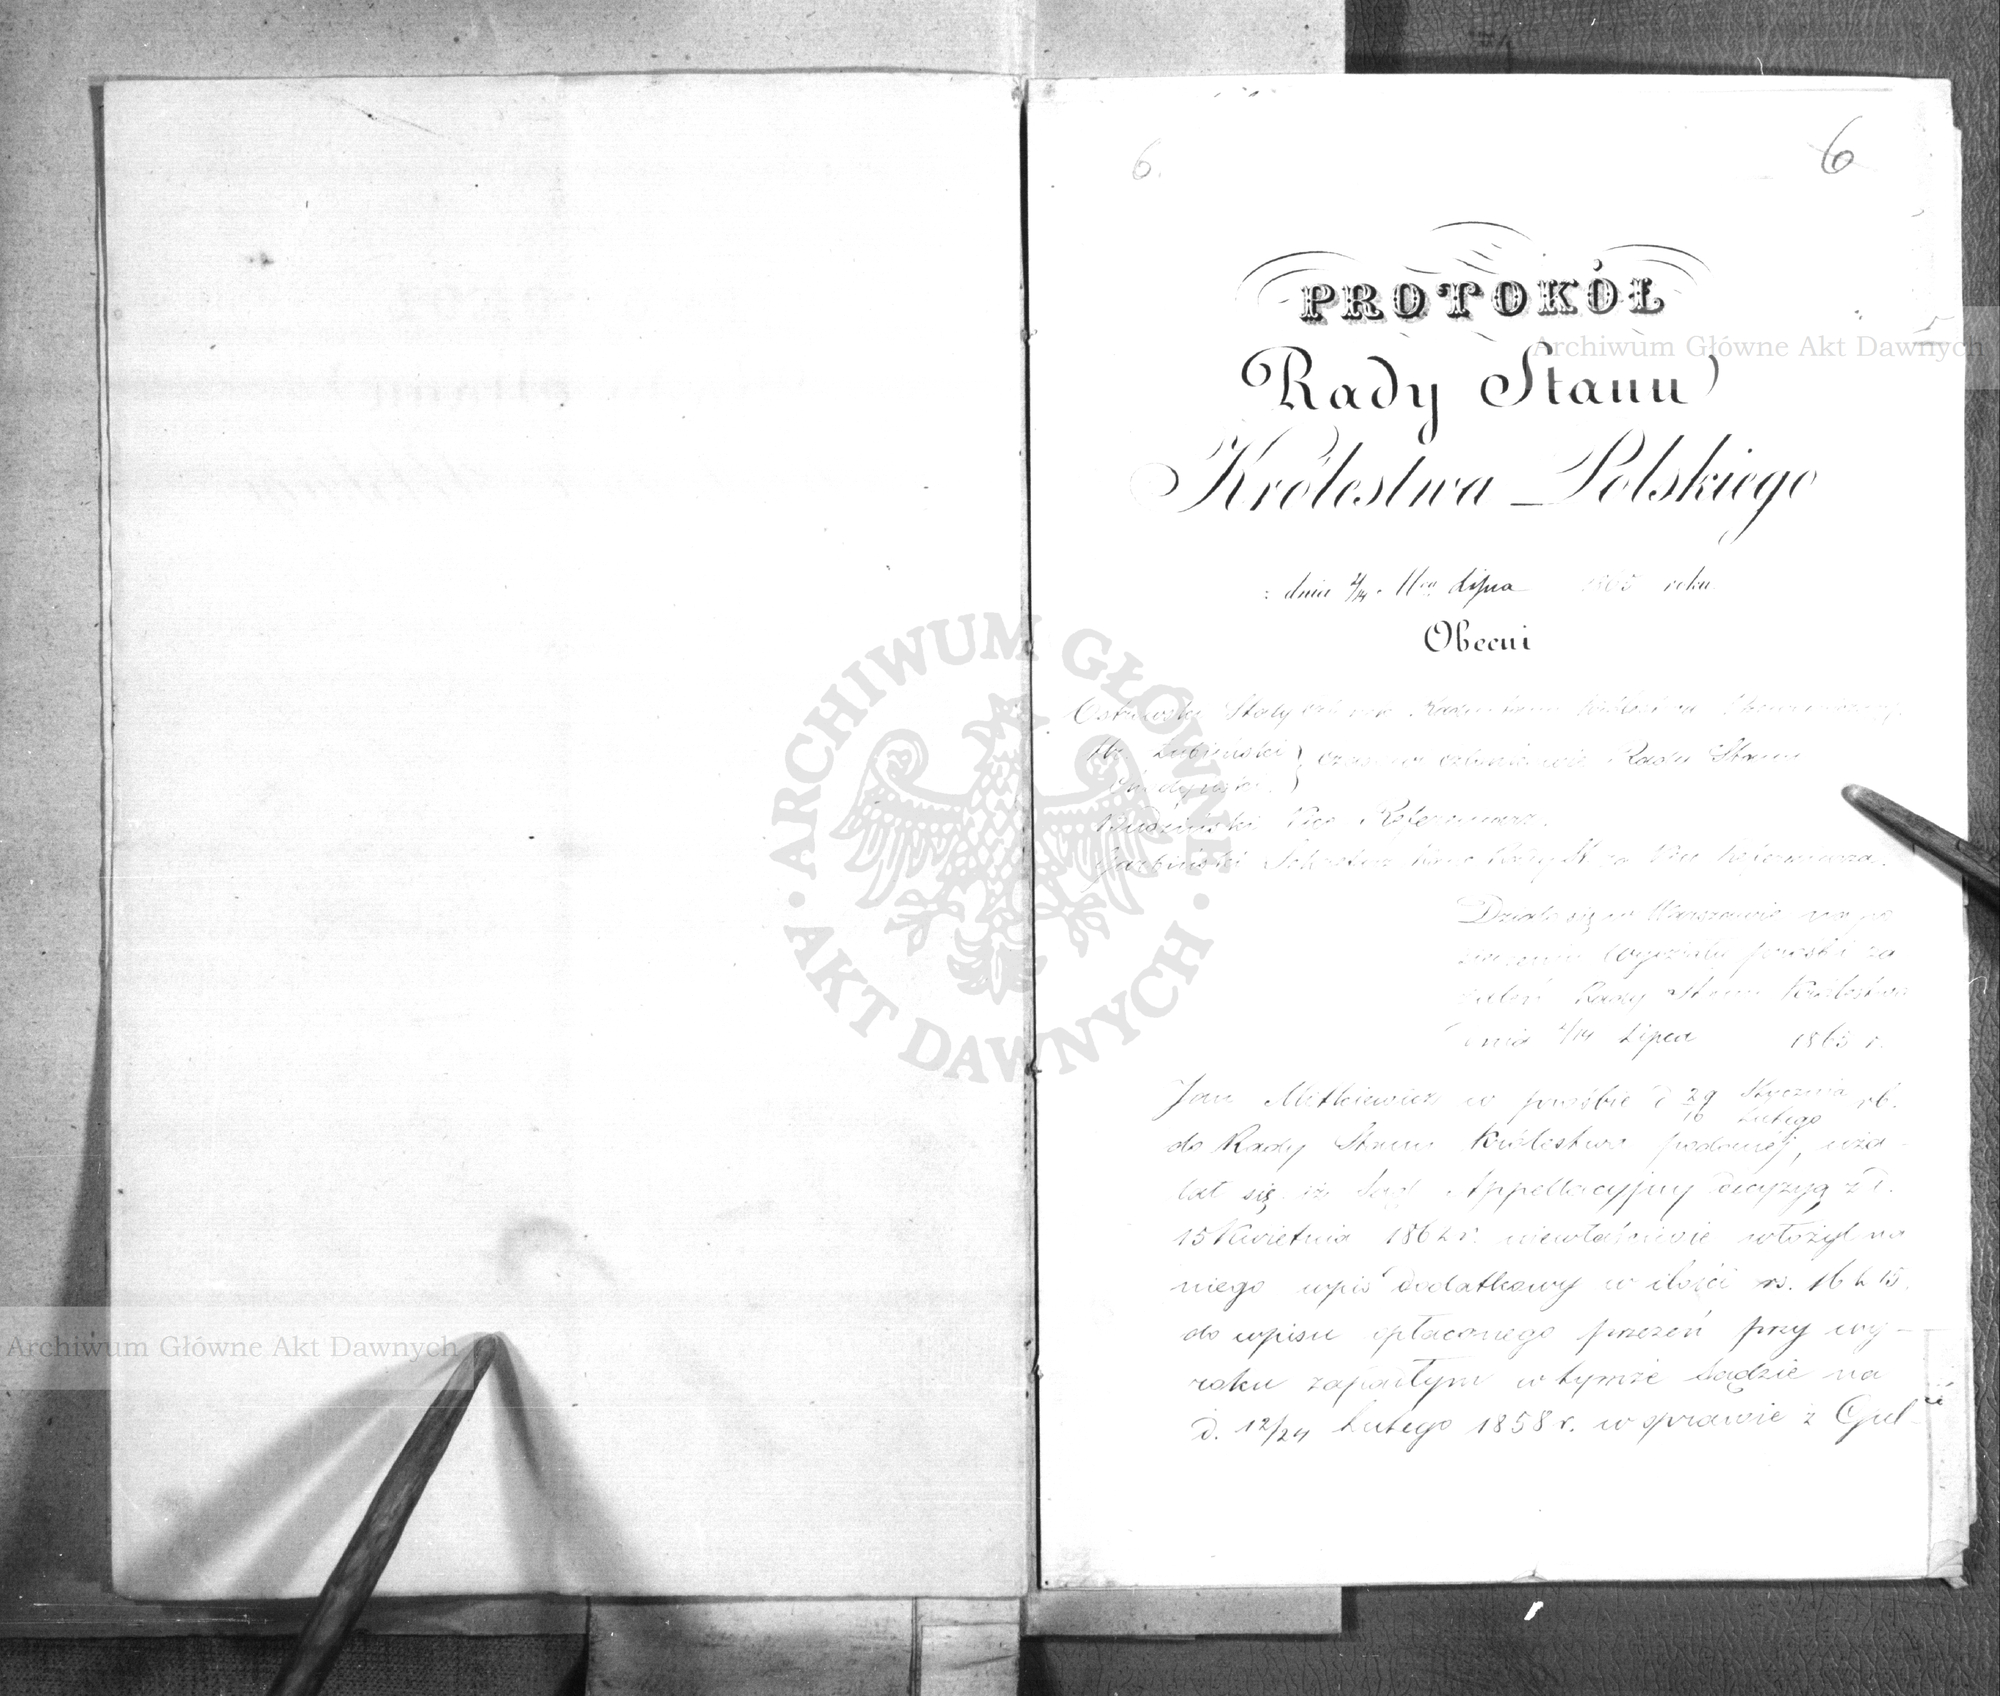 6.
6
PROTOKÓŁ
Rady Stanu
Królestwa Polskiego
z dnia 2/14 Lipca 1863 roku
Obecni
Ostrowski Stały Członek Królestwa
Hr. Łubieński } czasowi członkowie Rady Stanu
Budziński Vice Referendarz.
Garbiński Sekretarz za Vice Referendarza.
Działo się w Warszawie na po
siedzeniu Wydziału prośb i za
żaleń Rady Stanu Królestwa
dnia 2/14 Lipca 1863 r.
Jan Mitkiewicz w prośbie d 29 Stycznia / 10 Lutego rb.
do Rady Stanu Królestwa podanéj, uża-
lał się iż Sąd Appellacyjny decyzyą z d.
15 Kwietnia 1862 r. niewłaściwie włożył na
niego wpis dodatkowy w ilości rs. 162 k 15.
do wpisu opłaconego przezeń przy wy-
roku zapadłym w tymże Sądzie na
d. 12/24 Lutego 1858 r. w sprawie z Gul-
Archiwum Główne Akt Dawnych
ARCHIWUM GŁÓWNE
AKT DAWNYCH
Archiwum Główne Akt Dawnych